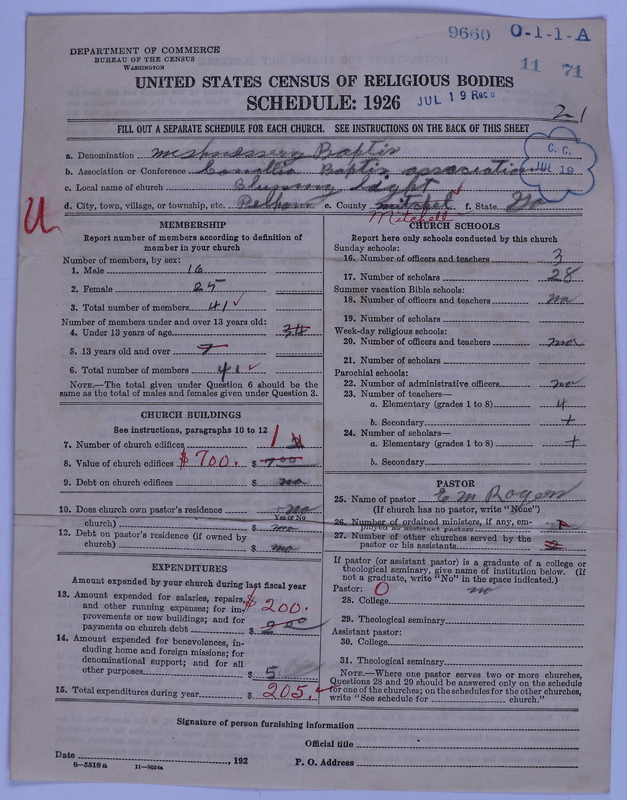 9660 O-1-1-A
11 71
DEPARTMENT OF COMMERCE
BUREAU OF THE CENSUS
WASHINGTON
UNITED STATES CENSUS OF RELIGIOUS BODIES
SCHEDULE: 1926
JUL 19 Recd
2-1
FILL OUT A SEPARATE SCHEDULE FOR EACH CHURCH. SEE INSTRUCTIONS ON THE BACK OF THIS SHEET
C. C.
JUL 19
a. Denomination Baptis
b. Association or Conference Camillia Baptis assraciation
c. Local name of church
d. City, town, village, or township, etc. Pelham e. County mitchel f. State Ga
Mitchell
U
MEMBERSHIP
Report number of members according to definition of
member in your church
Number of members, by sex:
1. Male 16
2. Female 25
3. Total number of members 41 ✓
Number of members under and over 13 years old:
4. Under 13 years of age 34
5. 13 years old and over 7
6. Total number of members 41 ✓
NOTE.—The total given under Question 6 should be
same as the total of males and females given under Question 3.
CHURCH BUILDINGS
See instructions, paragraphs 10 to 12
7. Number of church edifices 1
8. Value of church edifices $700. $ 700
9. Debt on church edifices $ no
10. Does church own pastor's residence no
Yes or No
church) $ no
12. Debt on pastor's residence (if owned by
church) $ no
EXPENDITURES
Amount expended by your church during last fiscal year
13. Amount expended for salaries, repairs,
and other running expenses; for im-
provements or new buildings; and for
payments on church debt $200. $ 200
14. Amount expended for benevolences, in-
cluding home and foreign missions; for
denominational support; and for all
other purposes $ 5
15. Total expenditures during year $ 205. ✓
CHURCH SCHOOLS
Report here only schools conducted by this church
Sunday schools:
16. Number of officers and teachers 3
17. Number of scholars 28
Summer vacation Bible schools:
18. Number of officers and teachers no
19. Number of scholars
Week-day religious schools:
20. Number of officers and teachers no
21. Number of scholars
Parochial schools:
22. Number of administrative officers no
23. Number of teachers—
a. Elementary (grades 1 to 8) 4
b. Secondary +
24. Number of scholars—
a. Elementary (grades 1 to 8) +
b. Secondary
PASTOR
25. Name of pastor E M Rogers
(If church has no pastor, write "None")
26. Number of ordained ministers, if any, em-
ployed as assistant pastors
27. Number of other churches served by the
pastor or his assistants
If pastor (or assistant pastor) is a graduate of a college or
theological seminary, give name of institution below. (If
not a graduate, write "No" in the space indicated.)
Pastor: O no
28. College
29. Theological seminary
Assistant pastor:
30. College
31. Theological seminary
NOTE.—Where one pastor serves two or more churches,
Questions 28 and 29 should be answered only on the schedule
for one of the churches; on the schedules for the other churches,
write "See schedule for church."
Signature of person furnishing information
Official title
Date , 192 P. O. Address
8—5518 a 11—9054a